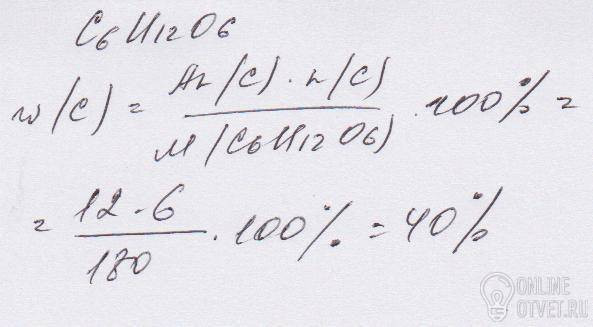 C6H12O6
w(C) = Ar(C) · n(C) / M(C6H12O6) · 100% =
= 12 · 6 / 180 · 100% = 40%
ONLINE
OTVET.RU